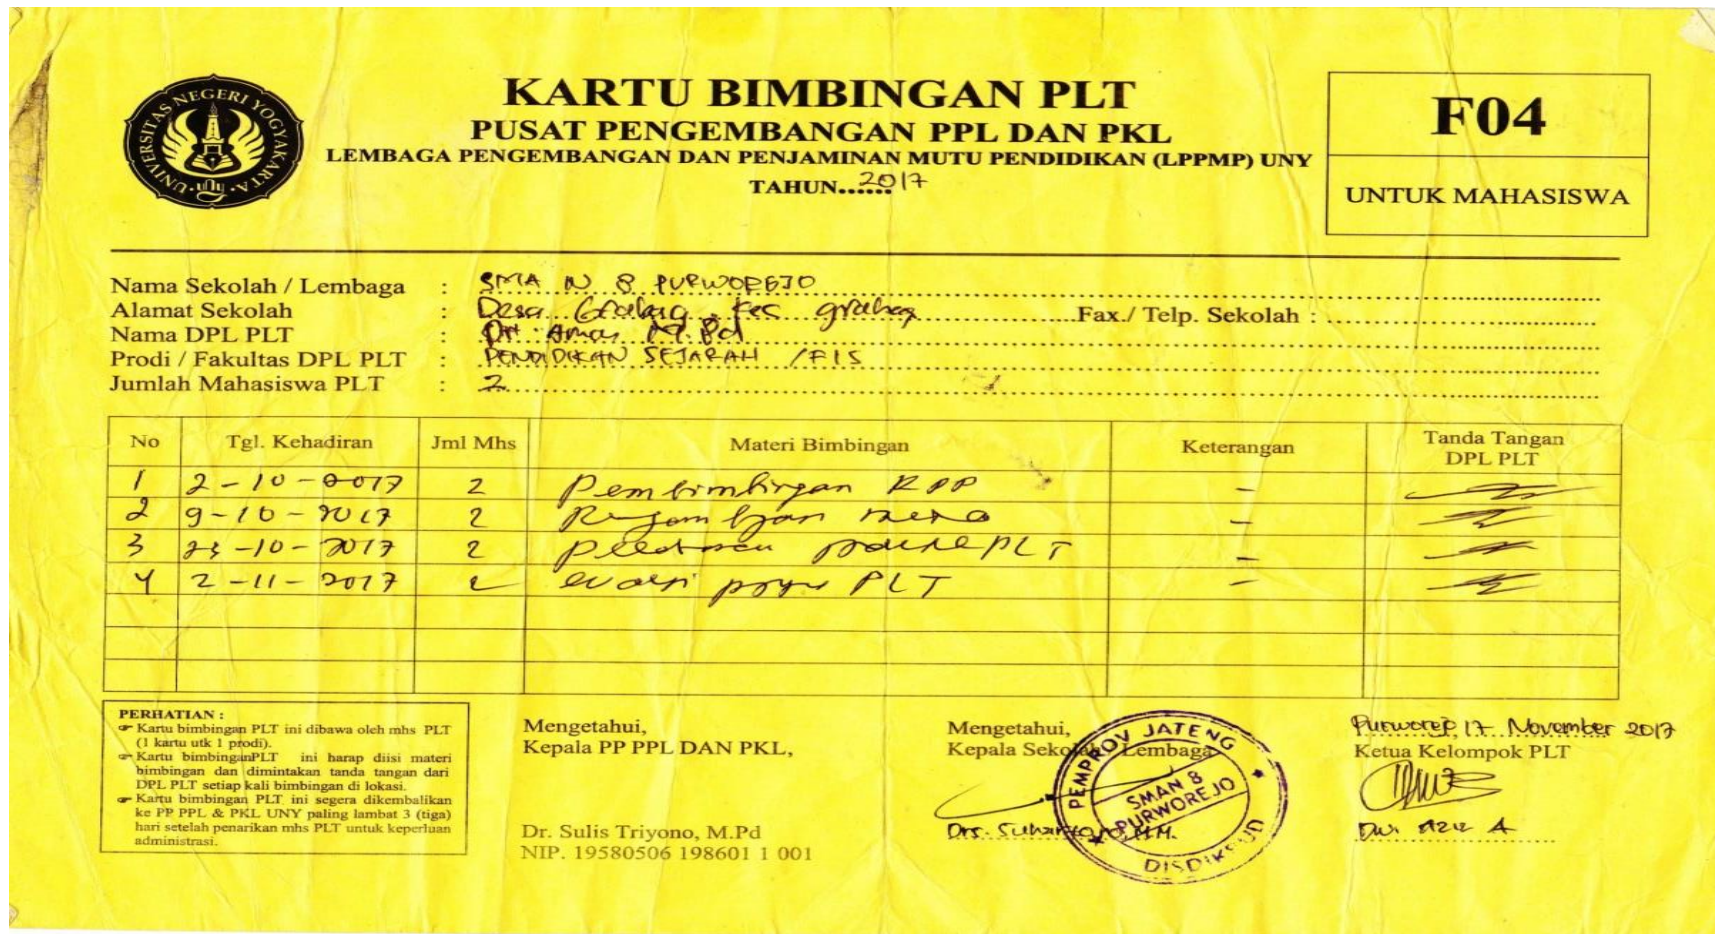 UNIVERSITAS NEGERI YOGYAKARTA
KARTU BIMBINGAN PLT
PUSAT PENGEMBANGAN PPL DAN PKL
LEMBAGA PENGEMBANGAN DAN PENJAMINAN MUTU PENDIDIKAN (LPPMP) UNY
TAHUN......2017
F04
UNTUK MAHASISWA
Nama Sekolah / Lembaga : SMA N 8 PURWOREJO
Alamat Sekolah : Desa Grabag, Kec grabag Fax./ Telp. Sekolah :
Nama DPL PLT : M.Pd
Prodi / Fakultas DPL PLT : PENDIDIKAN SEJARAH / FIS
Jumlah Mahasiswa PLT : 2
No Tgl. Kehadiran Jml Mhs Materi Bimbingan Keterangan Tanda Tangan DPL PLT
1 2-10-2017 2 Pembimbingan RPP -
2 9-10-2017 2 -
3 23-10-2017 2 PLT -
4 2-11-2017 2 PLT -
PERHATIAN :
☞ Kartu bimbingan PLT ini dibawa oleh mhs PLT
(1 kartu utk 1 prodi).
☞ Kartu bimbinganPLT ini harap diisi materi
bimbingan dan dimintakan tanda tangan dari
DPL PLT setiap kali bimbingan di lokasi.
☞ Kartu bimbingan PLT ini segera dikembalikan
ke PP PPL & PKL UNY paling lambat 3 (tiga)
hari setelah penarikan mhs PLT untuk keperluan
administrasi.
Mengetahui,
Kepala PP PPL DAN PKL,
Dr. Sulis Triyono, M.Pd
NIP. 19580506 198601 1 001
Mengetahui,
Kepala Sekolah / Lembaga
PEMPROV JATENG
SMAN 8
PURWOREJO
DISDIKBUD
Drs. M.M.
Purworejo, 17 November 2017
Ketua Kelompok PLT
Dwi A